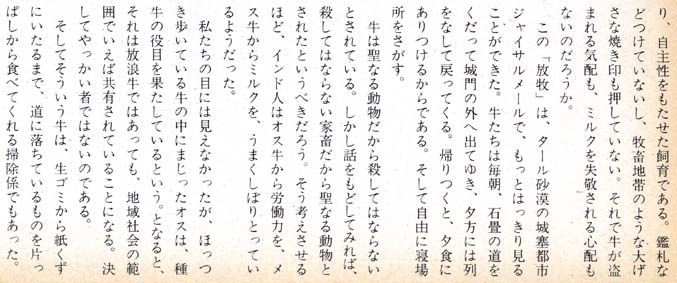 り、自主性をもたせた飼育である。鑑札な
どつけていないし、牧畜地帯のような大げ
さな焼き印も押していない。それで牛が盗
まれる気配も、ミルクを失敬される心配も
ないのだろうか。
この「放牧」は、タール砂漠の城塞都市
ジャイサルメールで、もっとはっきり見る
ことができた。牛たちは毎朝、石畳の道を
くだって城門の外へ出てゆき、夕方には列
をなして戻ってくる。帰りつくと、夕食に
ありつけるからである。そして自由に寝場
所をさがす。
牛は聖なる動物だから殺してはならない
とされている。しかし話をもどしてみれば、
殺してはならない家畜だから聖なる動物と
されたというべきだろう。そう考えさせる
ほど、インド人はオス牛から労働力を、メ
ス牛からミルクを、うまくしぼりとってい
るようだった。
私たちの目には見えなかったが、ほっつ
き歩いている牛の中にまじったオスは、種
牛の役目を果たしているという。となると、
それは放浪牛ではあっても、地域社会の範
囲でいえば共有されていることになる。決
してやっかい者ではないのである。
そしてそういう牛は、生ゴミから紙くず
にいたるまで、道に落ちているものを片っ
ぱしから食べてくれる掃除係でもあった。